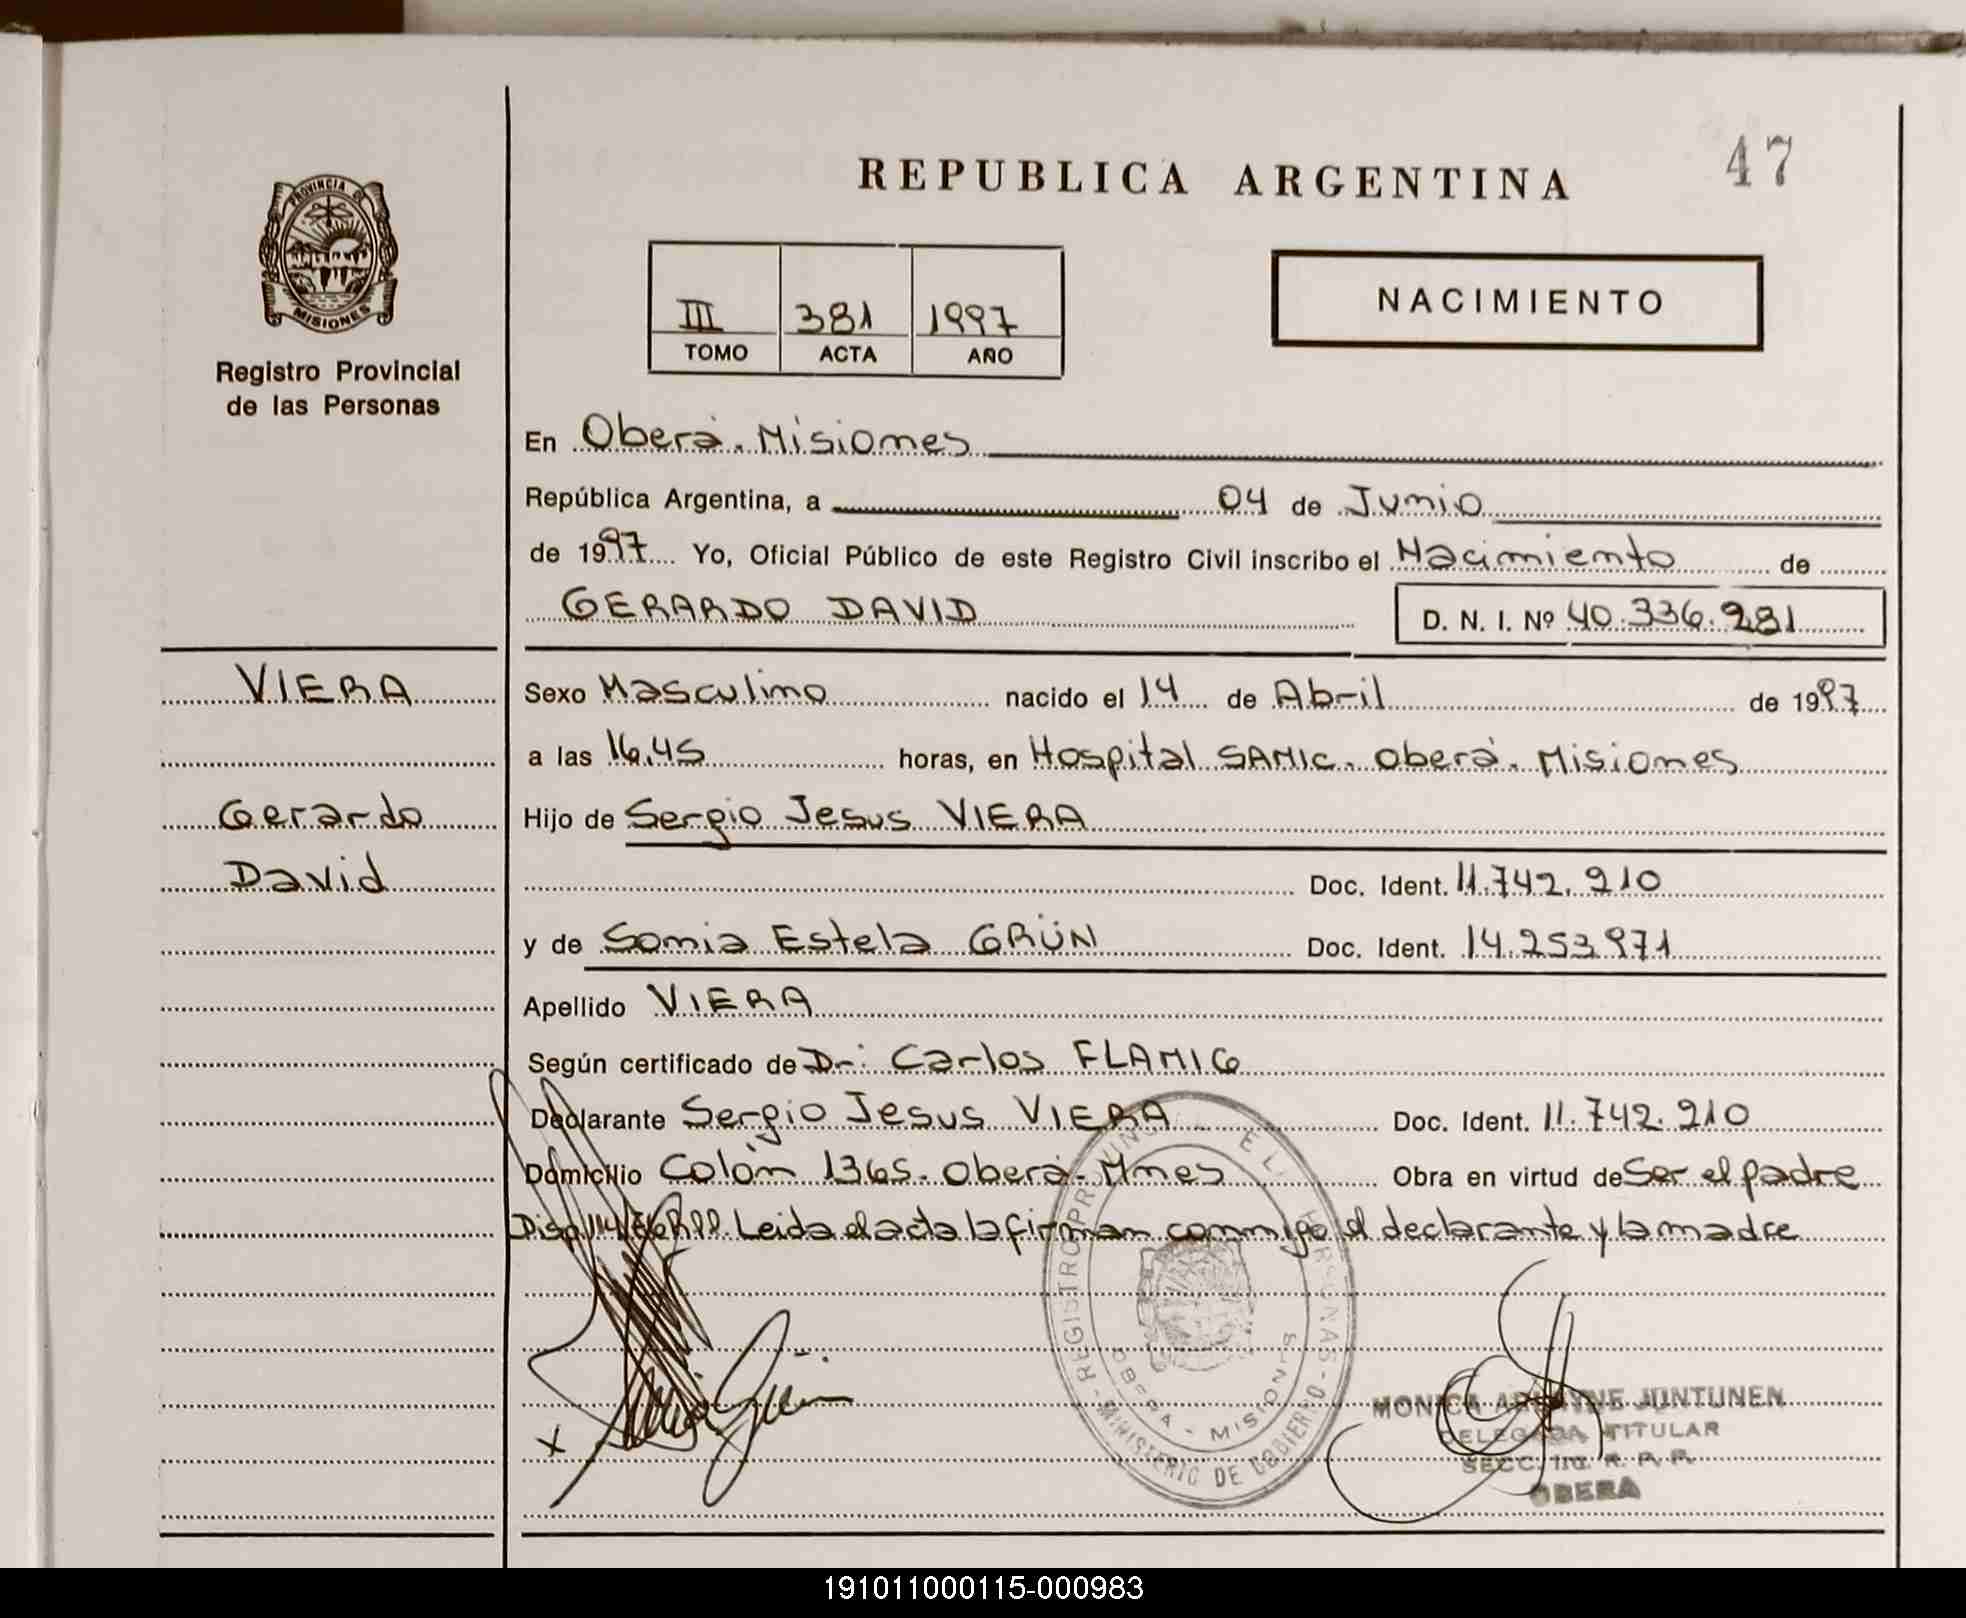 47
REPUBLICA ARGENTINA
PROVINCIA DE
MISIONES
Registro Provincial
de las Personas
III 381 1997
TOMO ACTA AÑO
NACIMIENTO
En Oberá. Misiones
República Argentina, a 04 de Junio
de 1997 Yo, Oficial Público de este Registro Civil inscribo el Nacimiento de
GERARDO DAVID D. N. I. Nº 40.336.281
VIERA
Gerardo
David
Sexo Masculino nacido el 14 de Abril de 1997
a las 16,45 horas, en Hospital SAMIC. Oberá. Misiones
Hijo de Sergio Jesus VIERA
Doc. Ident. 11.742.210
y de Sonia Estela GRÜN Doc. Ident. 14.253.971
Apellido VIERA
Según certificado de Dr: Carlos FLAMIG
Declarante Sergio Jesus VIERA Doc. Ident. 11.742.210
Domicilio Colón 1365. Oberá. Mnes Obra en virtud de Ser el padre
Leida el acta la firman conmigo el declarante y la madre
REGISTRO PROVINCIAL DE LAS PERSONAS
OBERA - MISIONES
MINISTERIO DE GOBIERNO
X
MONICA JUNTUNEN
DELEGADA TITULAR
SECC. R. P. P.
OBERA
191011000115-000983